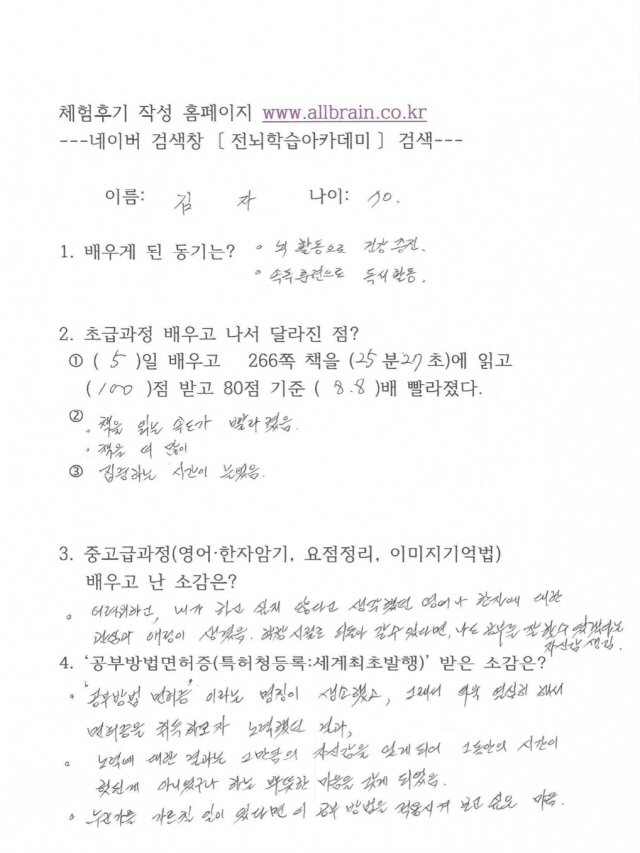 체험후기 작성 홈페이지 www.allbrain.co.kr
---네이버 검색창 [ 전뇌학습아카데미 ] 검색---
이름: 김 자 나이: 50.
1. 배우게 된 동기는? ∘ 뇌 활동으로 건강 증진.
∘ 속독훈련으로 독서활동.
2. 초급과정 배우고 나서 달라진 점?
① ( 5 )일 배우고 266쪽 책을 (25 분 27 초)에 읽고
( 100 )점 받고 80점 기준 ( 8.8 )배 빨라졌다.
② ∘ 책을 읽는 속도가 빨라졌음.
∘ 책을 더 많이
③ 집중하는 시간이 늘었음.
3. 중고급과정(영어·한자암기, 요점정리, 이미지기억법)
배우고 난 소감은?
∘ 어려워하고, 내가 하고 싶지 않다고 생각했던 영어나 한자에 대한
관심과 애정이 생겼음. 학창시절로 되돌아 갈수 있다면, 나도 공부를 잘 할수 있겠다는
자신감 생김.
4. '공부방법면허증(특허청등록:세계최초발행)' 받은 소감은?
∘ '공부방법 면허증' 이라는 명칭이 생소했고, 그래서 더욱 열심히 해서
면허증을 취득하고자 노력했던 결과,
∘ 노력에 대한 결과는 그만큼의 자신감을 얻게되어 그동안의 시간이
헛된게 아니었구나 하는 뿌듯한 마음을 갖게 되었음.
∘ 누군가를 가르칠 일이 있다면 이 공부 방법을 적용시켜 보고 싶은 마음.